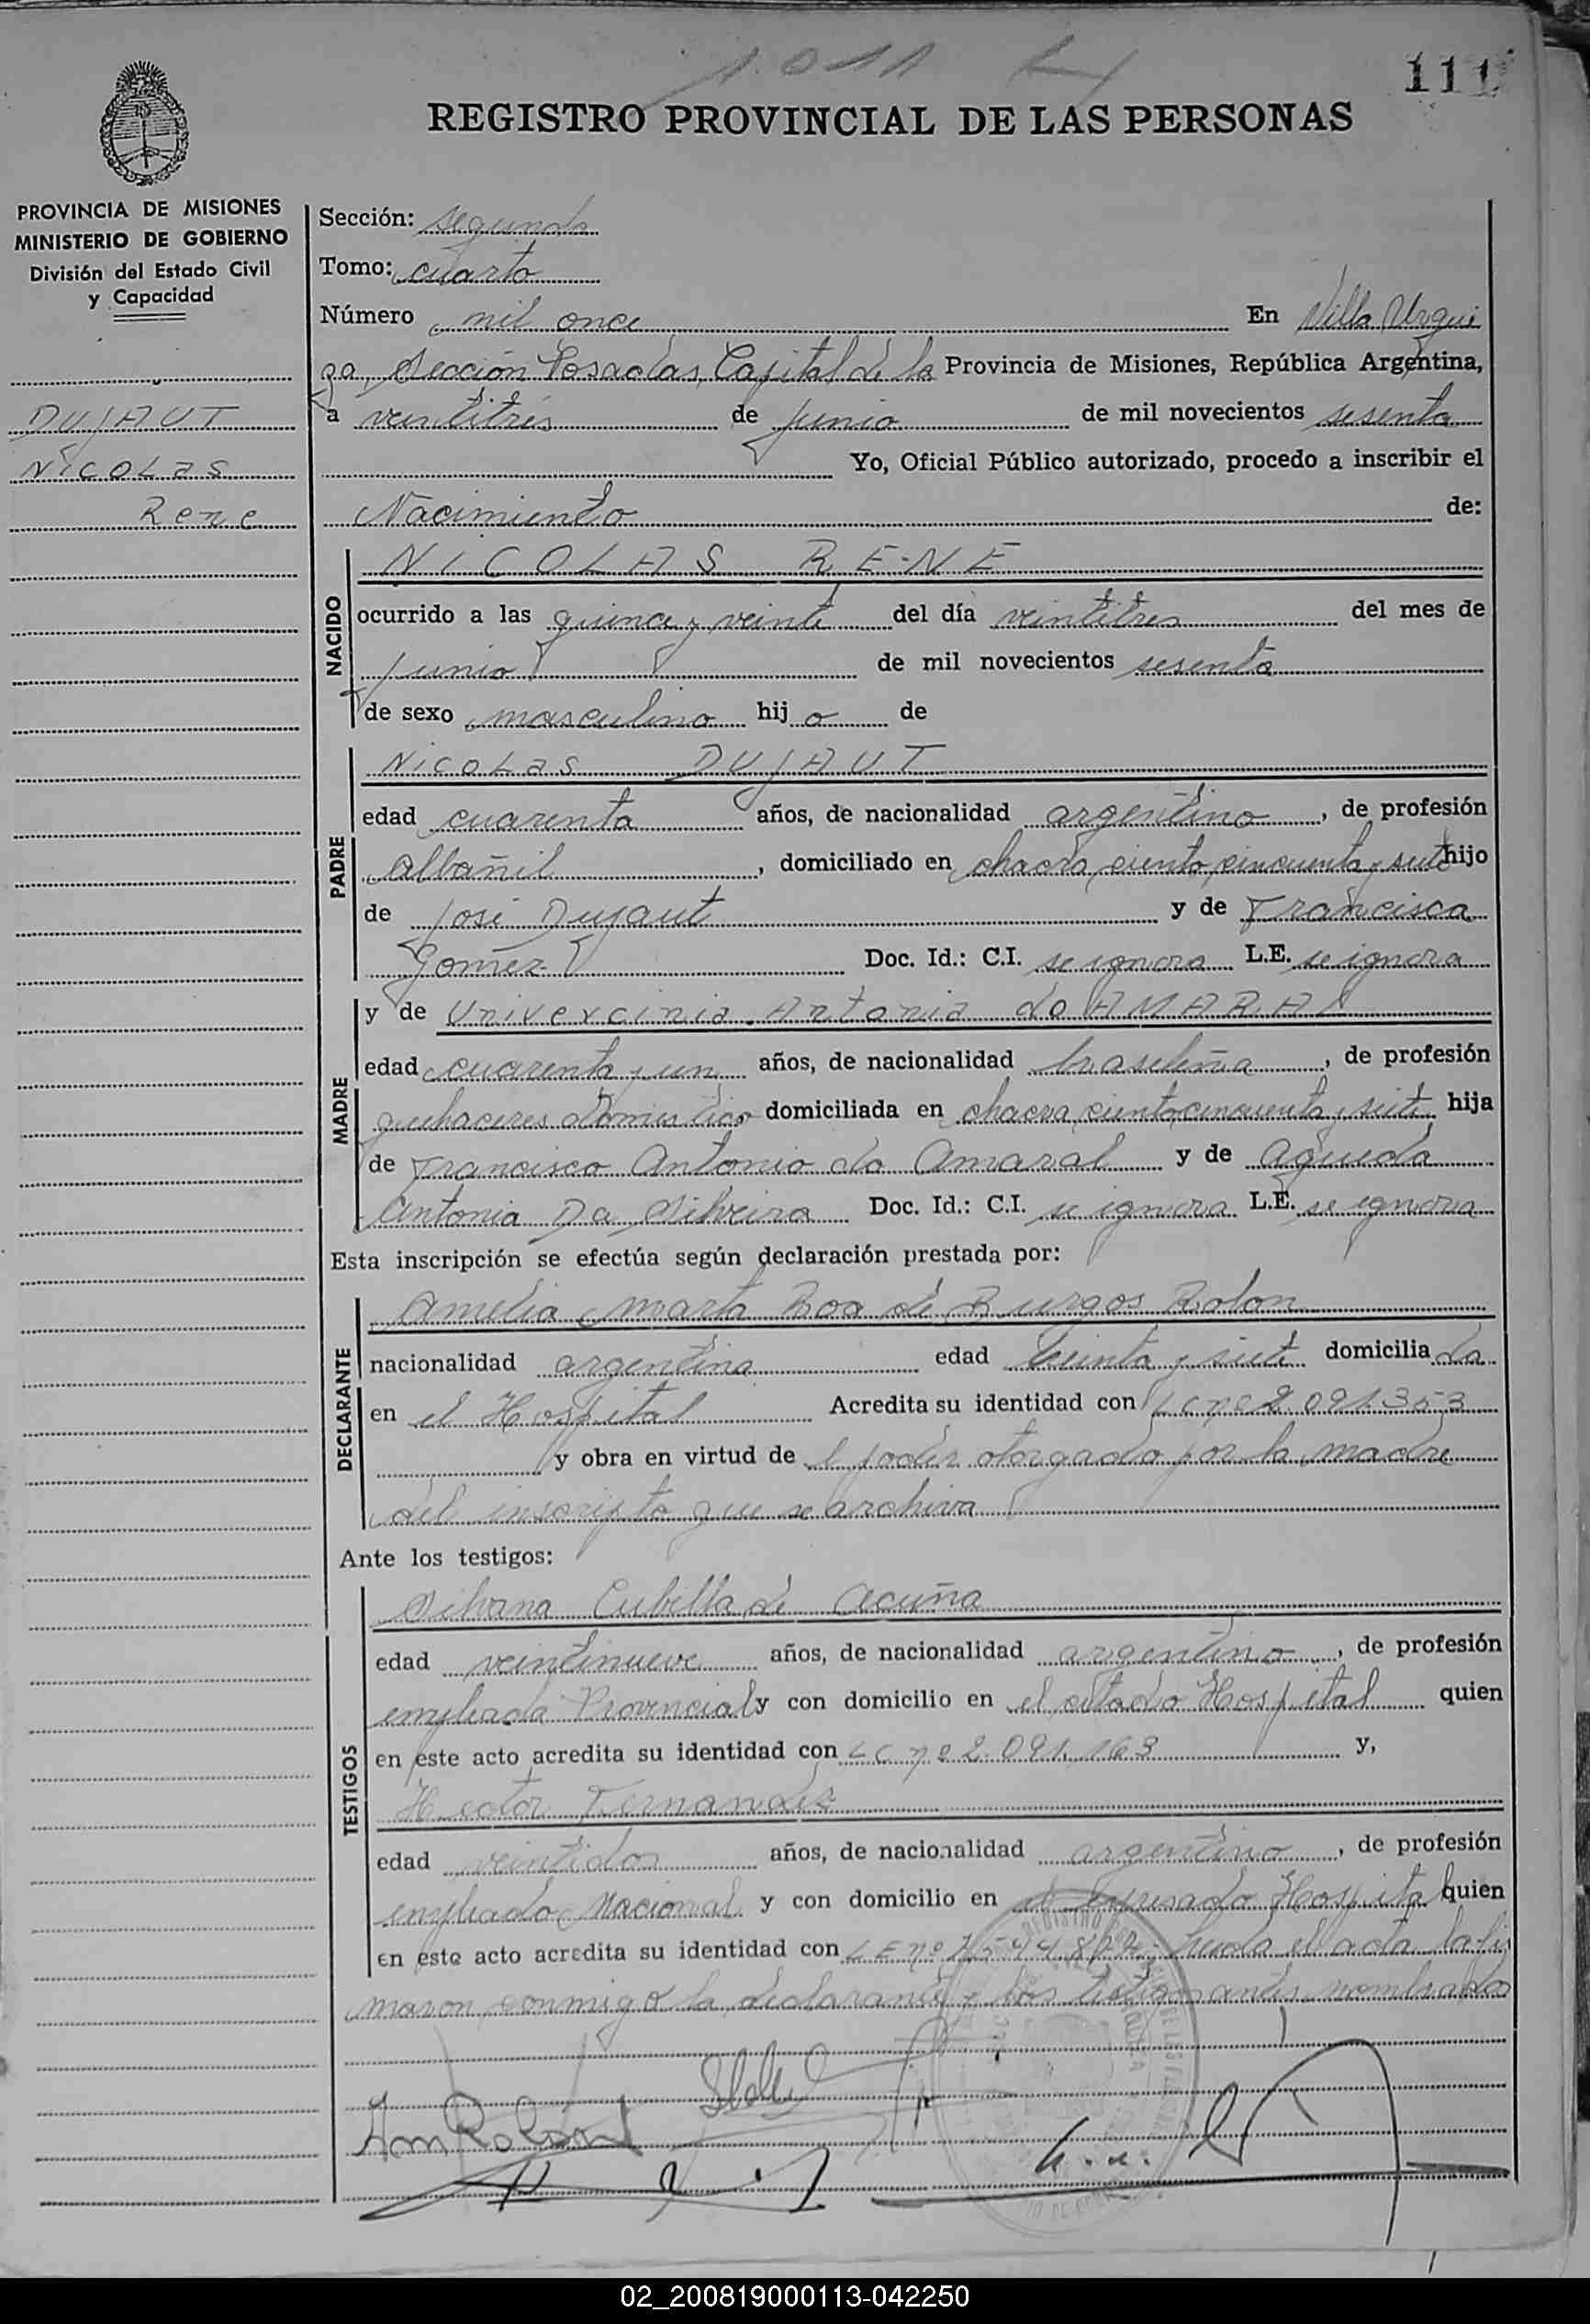 1.011
111
REGISTRO PROVINCIAL DE LAS PERSONAS
PROVINCIA DE MISIONES
MINISTERIO DE GOBIERNO
División del Estado Civil
y Capacidad
DUJAUT
NICOLAS
Rene
Sección: segunda
Tomo: cuarto
Número mil once En Villa Urqui
za, Sección Posadas, Capital de la Provincia de Misiones, República Argentina,
a veintitrés de junio de mil novecientos sesenta
Yo, Oficial Público autorizado, procedo a inscribir el
Nacimiento de:
NACIDO
NICOLAS RENE
ocurrido a las quince y veinte del día veintitres del mes de
junio de mil novecientos sesenta
de sexo masculino hijo de
PADRE
NICOLAS DUJAUT
edad cuarenta años, de nacionalidad argentino, de profesión
albañil, domiciliado en chacra ciento cincuenta y siete hijo
de José Dujaut y de Francisca
Gomez Doc. Id.: C.I. se ignora L.E. se ignora
MADRE
y de Univercinia Antonia do AMARAL
edad cuarenta y un años, de nacionalidad brasileña, de profesión
quehaceres domesticos domiciliada en chacra ciento cincuenta y siete hija
de Francisco Antonio do Amaral y de Agueda
Antonia Da Silveira Doc. Id.: C.I. se ignora L.E. se ignora
Esta inscripción se efectúa según declaración prestada por:
DECLARANTE
Amelia Marta Roa de Burgos Rolon
nacionalidad argentina edad treinta y siete domiciliada
en el Hospital Acredita su identidad con LC nº 2.091.353
y obra en virtud de l poder otorgado por la madre
del inscripto que se archiva
Ante los testigos:
TESTIGOS
Silvana Cubilla de Acuña
edad veintinueve años, de nacionalidad argentino, de profesión
empleada Provincial y con domicilio en el citado Hospital quien
en este acto acredita su identidad con LC nº 2.091.163 y,
Hector Fernandez
edad veintidos años, de nacionalidad argentino, de profesión
empleado Nacional y con domicilio en el expresado Hospital quien
en este acto acredita su identidad con LE nº Leida el acta la fir
maron conmigo la declarante y los testigos antes nombrados
02_200819000113-042250